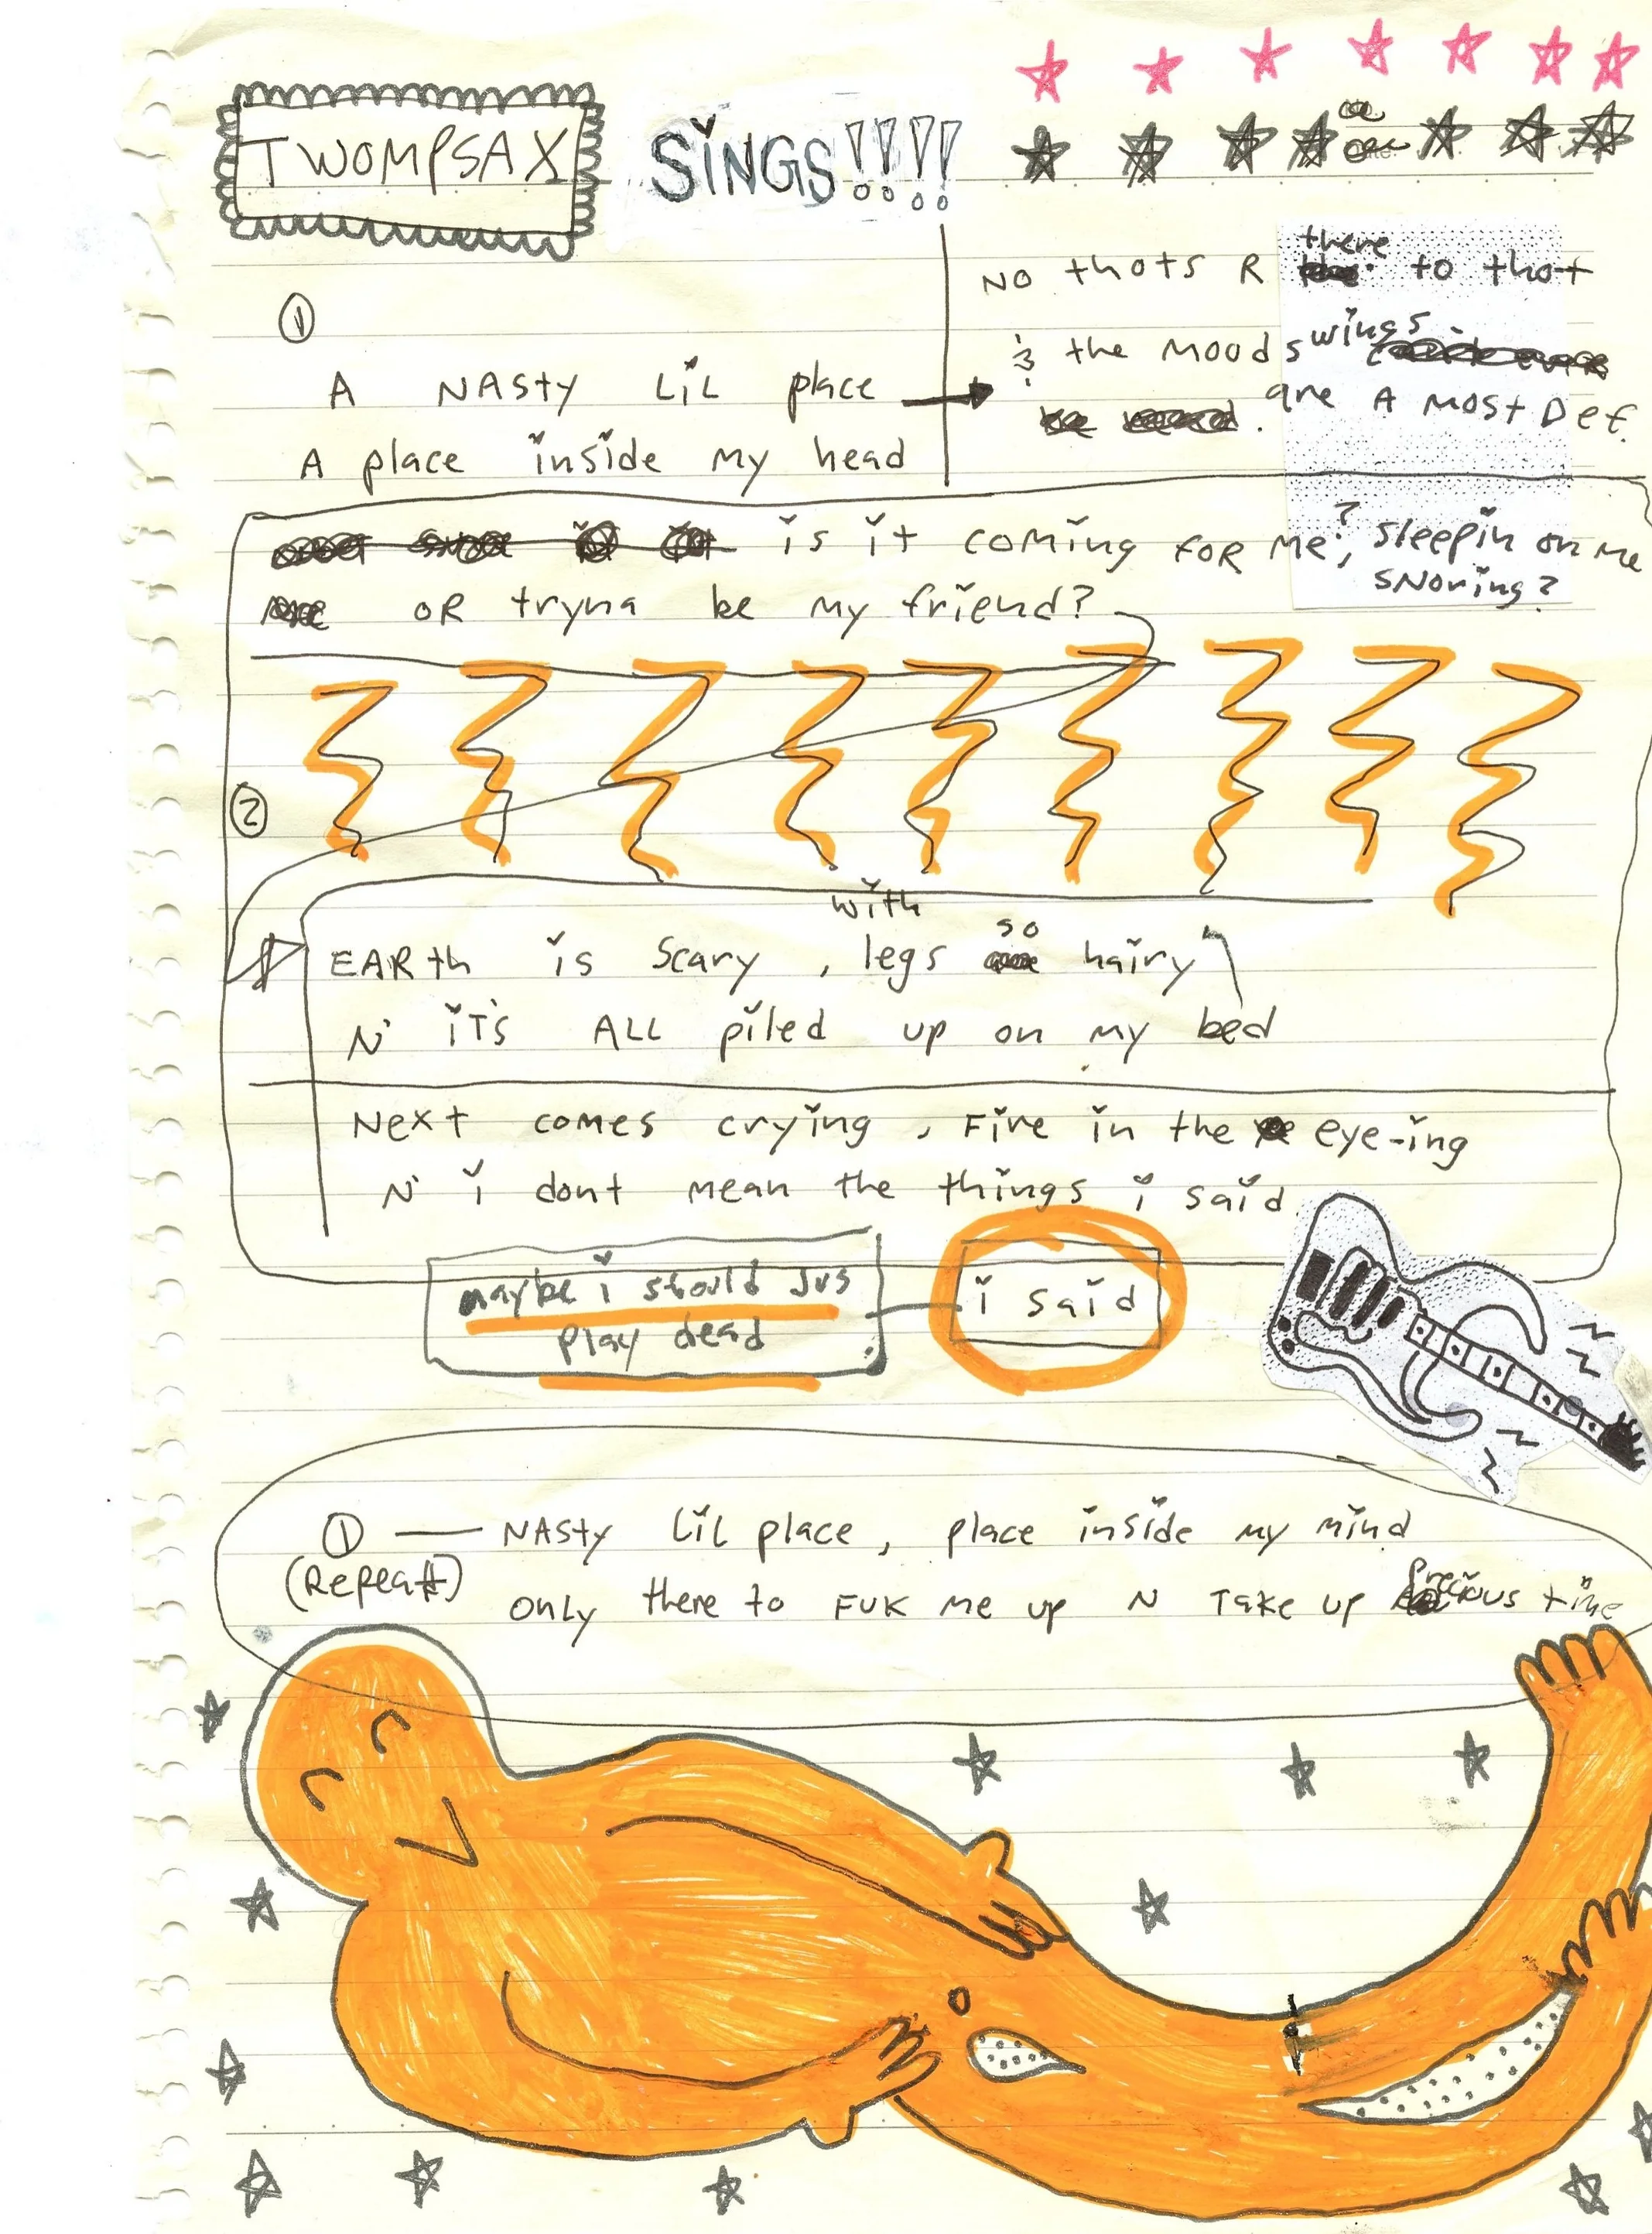 TWOMPSAX SiNGS!!!!
①
A NASty LiL place
A place inside my head
NO thots R there to thot
& the moodswings
are A most Def.
is it coming FOR Me?, sleepin on me
snoring?
OR tryna be my friend?
②
EARth is scary, with legs so hairy
N' iT's ALL piled up on my bed
Next comes crying, Fire in the eye-ing
N' i dont mean the things i said
maybe i should jus
play dead
i said
① — NASty LiL place, place inside my mind
(Repeat) ONLY there to FUK me up N Take up precious time